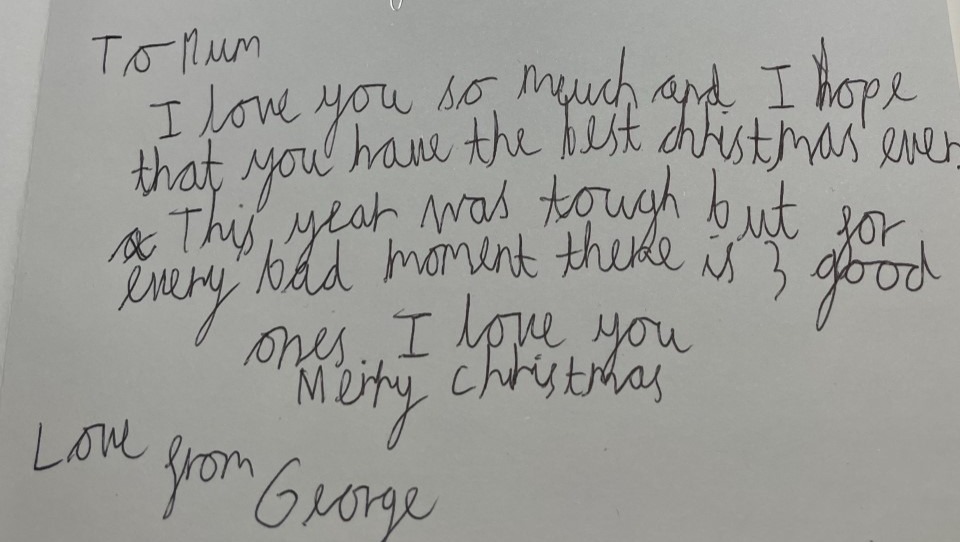 To Mum
I love you so much and I hope
that you have the best christmas ever.
This year was tough but for
every bad moment there is 3 good
ones. I love you
Merry christmas
Love from
George